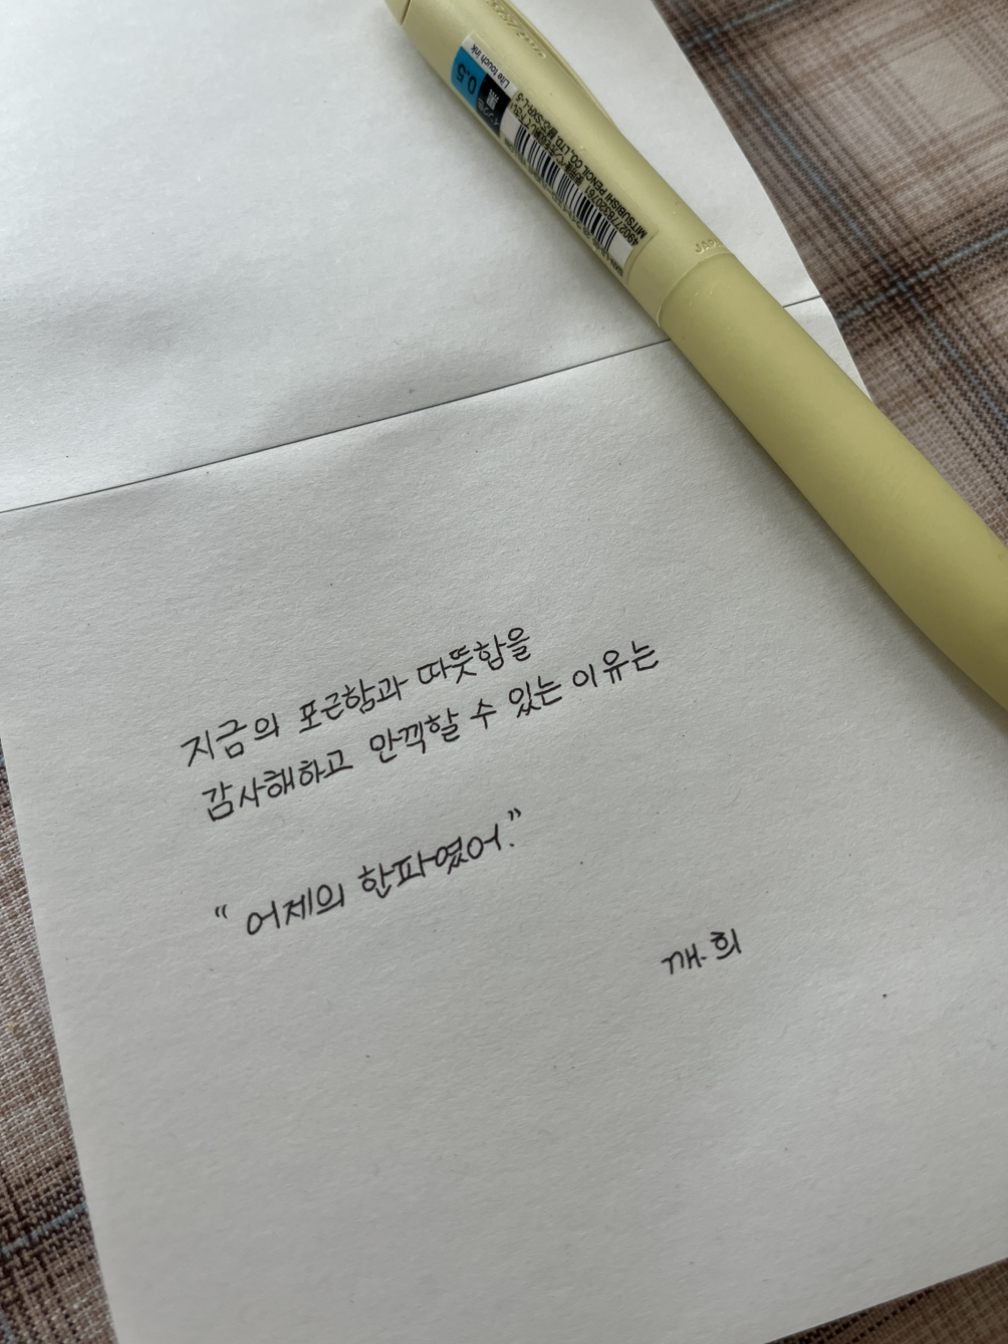 지금의 포근함과 따뜻함을
감사해하고 만끽할 수 있는 이유는
“어제의 한파였어.”
깨.희
Life touch ink
0.5
黒
4902778320761
MITSUBISHI PENCIL CO., LTD.
JAPAN